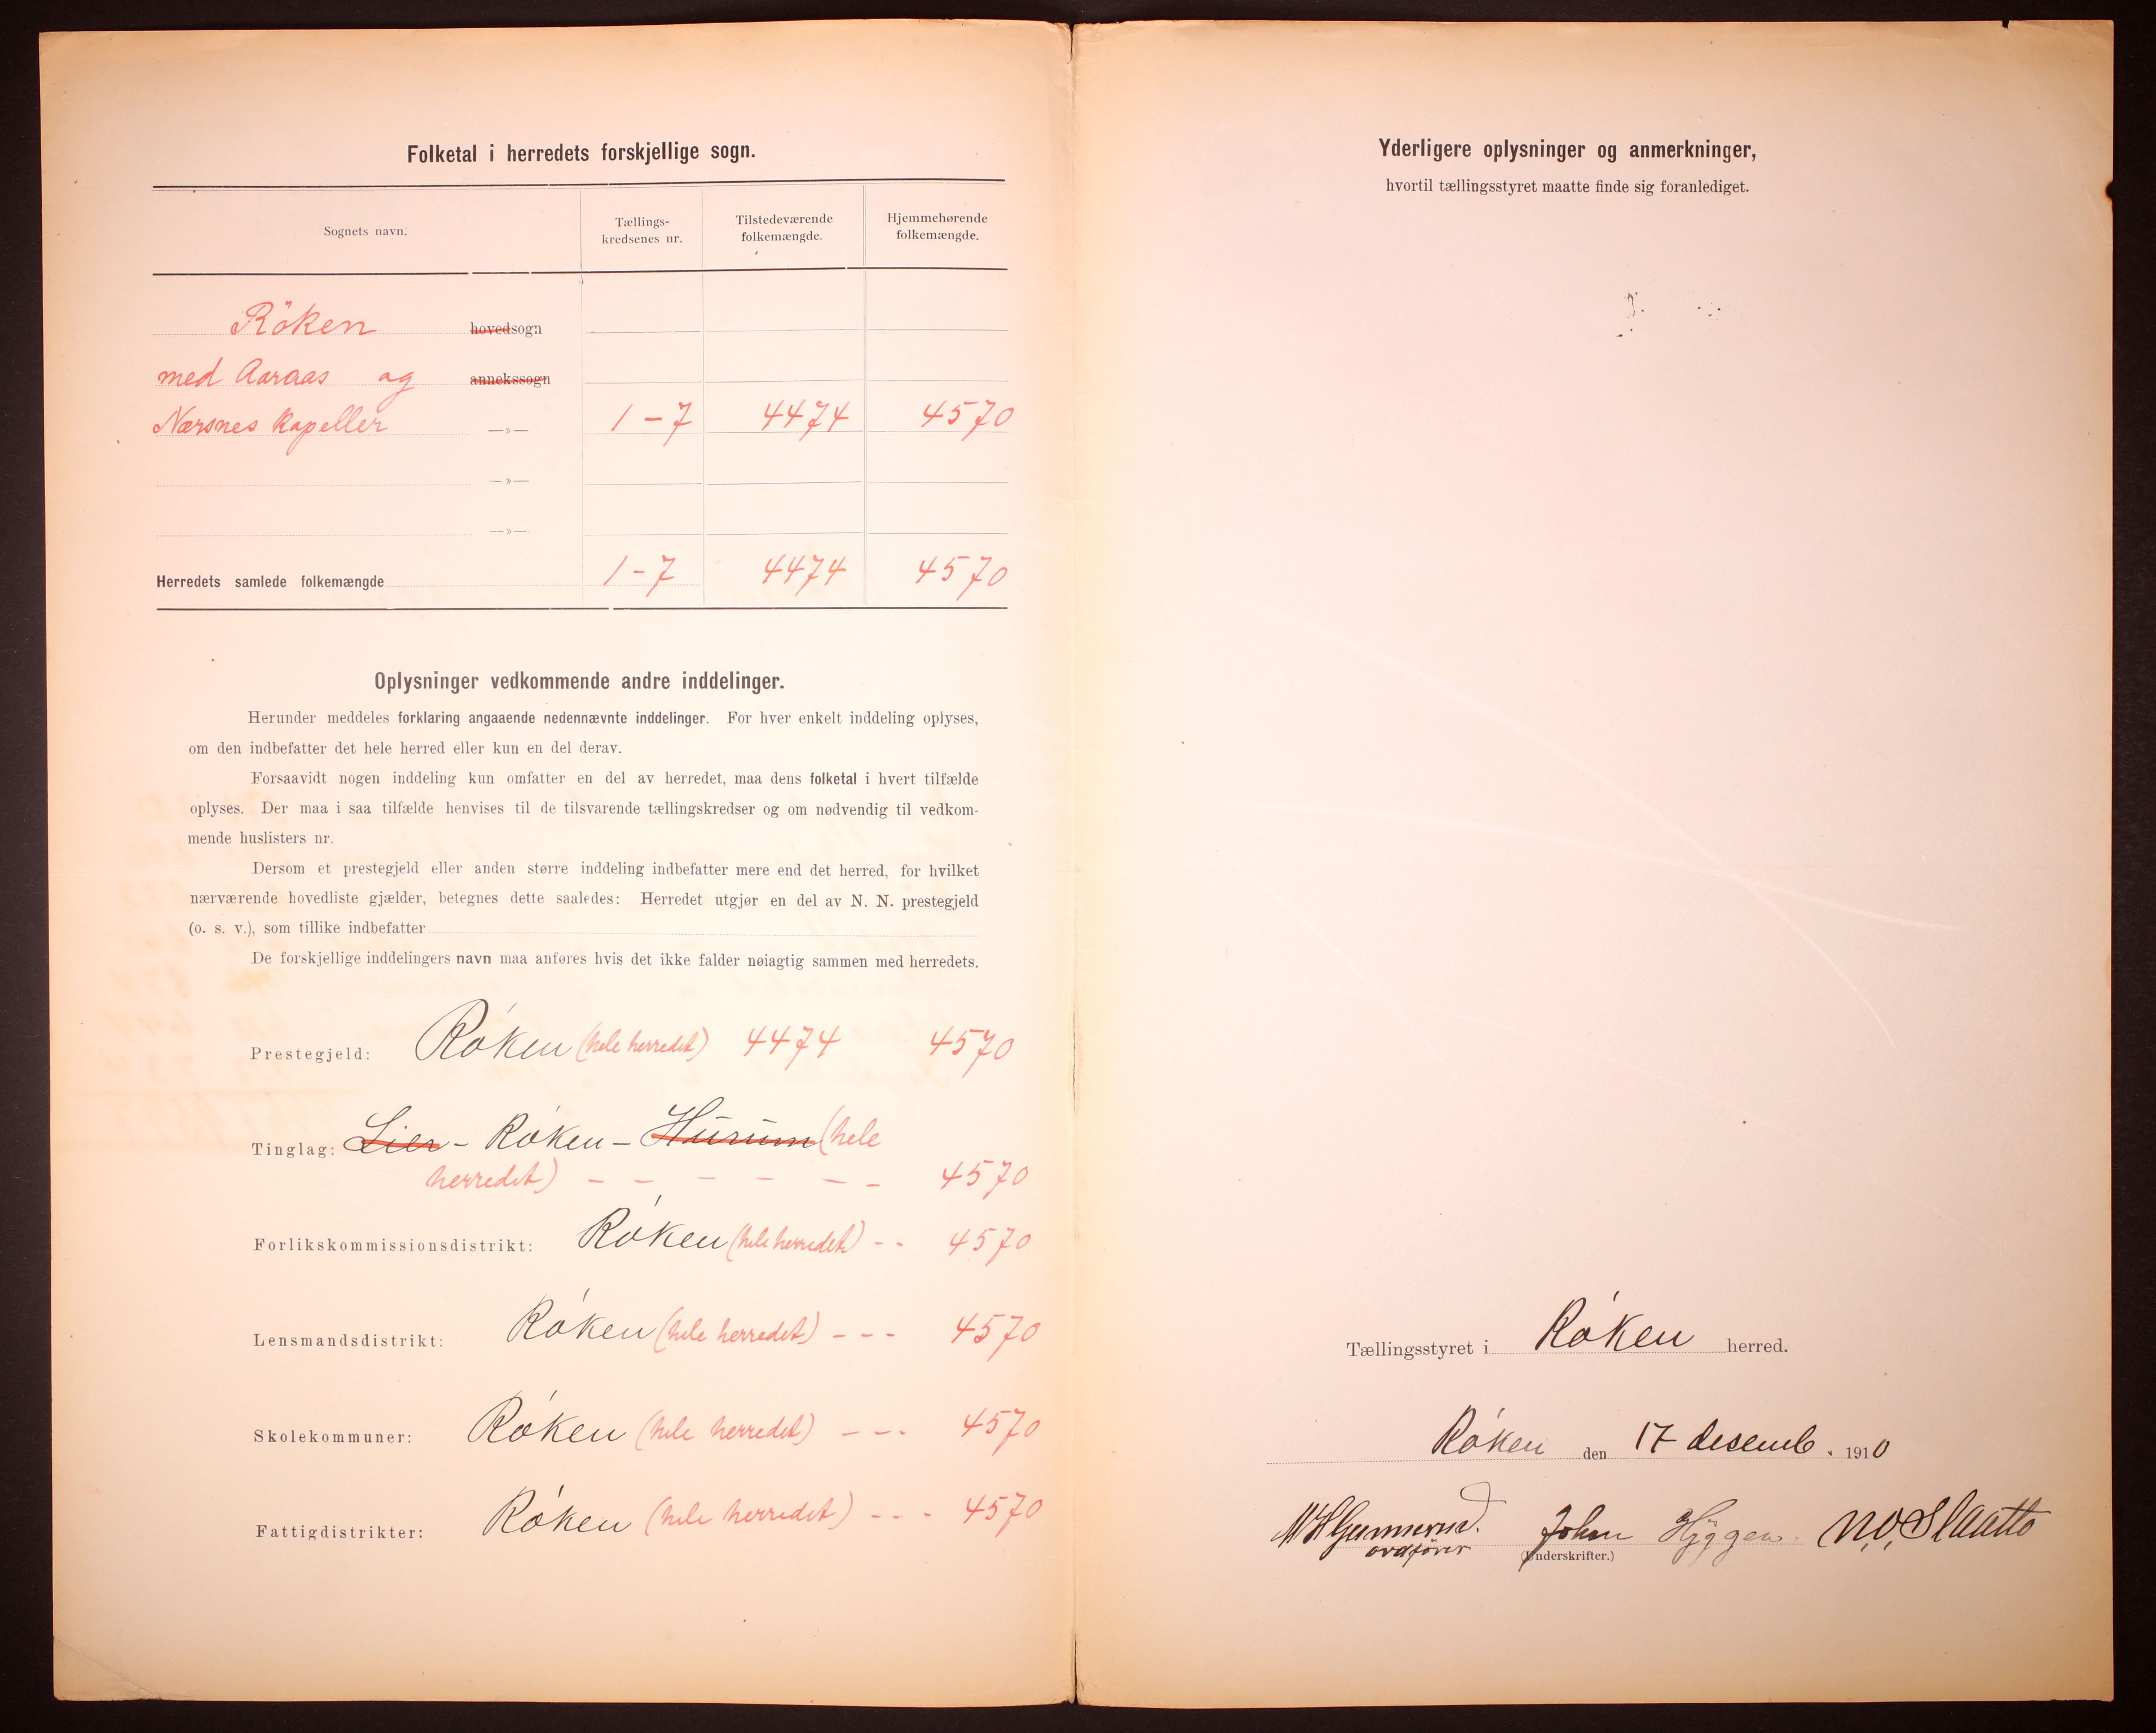 Folketal i herredets forskjellige sogn.
Sognets navn.
Tællings-
kredsenes nr.
Tilstedeværende
folkemængde.
Hjemmehørende
folkemængde.
Röken hovedsogn
med Aaraas og annekssogn
Nærsnes kapeller —»— 1-7 4474 4570
—»—
—»—
Herredets samlede folkemængde 1-7 4474 4570
Oplysninger vedkommende andre inddelinger.
Herunder meddeles forklaring angaaende nedennævnte inddelinger. For hver enkelt inddeling oplyses,
om den indbefatter det hele herred eller kun en del derav.
Forsaavidt nogen inddeling kun omfatter en del av herredet, maa dens folketal i hvert tilfælde
oplyses. Der maa i saa tilfælde henvises til de tilsvarende tællingskredser og om nødvendig til vedkom-
mende huslisters nr.
Dersom et prestegjeld eller anden større inddeling indbefatter mere end det herred, for hvilket
nærværende hovedliste gjælder, betegnes dette saaledes: Herredet utgjør en del av N. N. prestegjeld
(o. s. v.), som tillike indbefatter
De forskjellige inddelingers navn maa anføres hvis det ikke falder nøiagtig sammen med herredets.
Prestegjeld: Róken (hele herredet) 4474 4570
Tinglag: Lier - Róken - Hurum (hele
herredet) - - - - - - 4570
Forlikskommissionsdistrikt: Róken (hele herredet) - - 4570
Lensmandsdistrikt: Róken (hele herredet) - - - 4570
Skolekommuner: Róken (hele herredet) - - - 4570
Fattigdistrikter: Róken (hele herredet) - - - 4570
Yderligere oplysninger og anmerkninger,
hvortil tællingsstyret maatte finde sig foranlediget.
Tællingsstyret i Róken herred.
Róken den 17 desemb. 1910
M H Gunnerud. John Hyggen. N.O. Slaatto
ordfører (Underskrifter.)